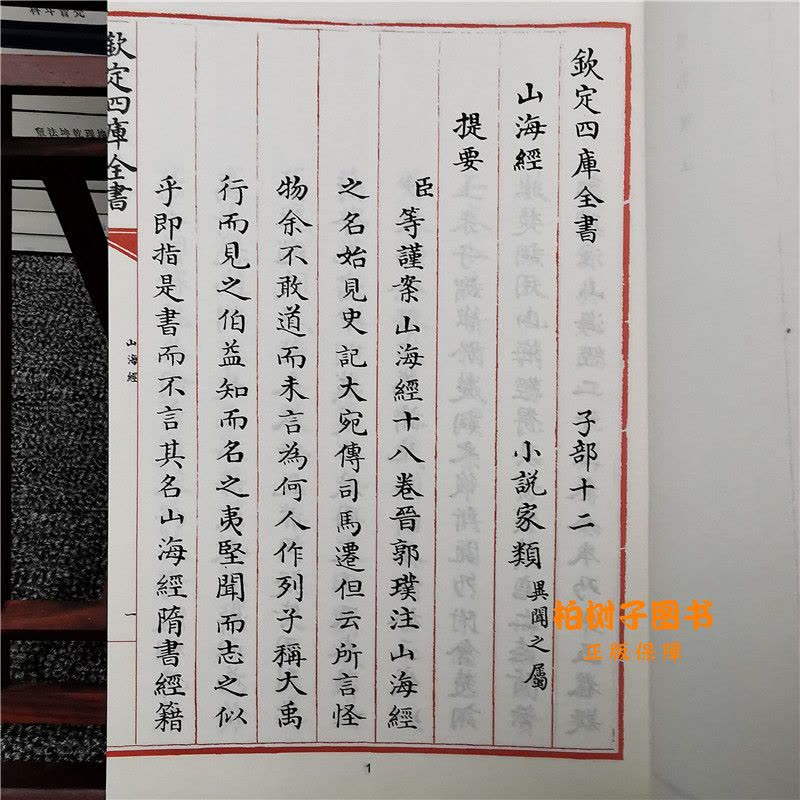 欽定四庫全書 子部十二
山海經 小説家類 異聞之屬
提要
臣等謹案山海經十八卷晉郭璞注山海經
之名始見史記大宛傳司馬遷但云所言怪
物余不敢道而未言為何人作列子稱大禹
行而見之伯益知而名之夷堅聞而志之似
乎即指是書而不言其名山海經隋書經籍
欽定四庫全書
山海經
一
1
柏树子图书
正版保障